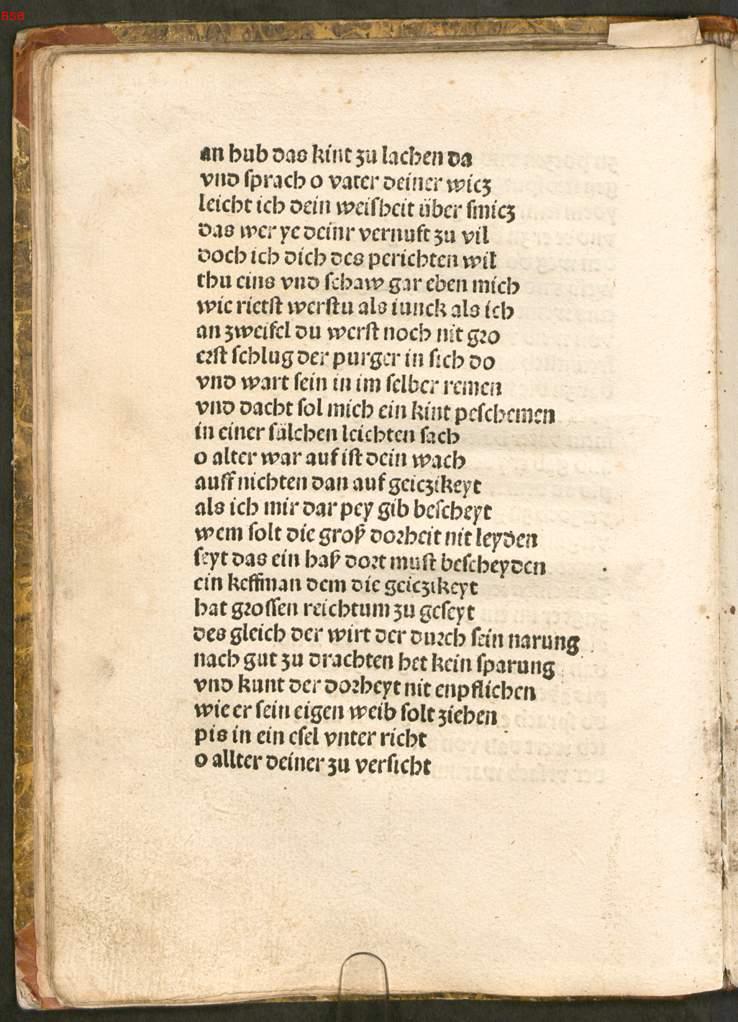 858
an hub das kint zu lachen da
vnd sprach o vater deiner wicz
leicht ich dein weisheit über smicz
das wer ye deinr vernuft zu vil
doch ich dich des perichten wil
thu eins vnd schaw gar eben mich
wie rietst werstu als iunck als ich
an zweifel du werst noch nit gro
erst schlug der purger in sich do
vnd wart sein in im selber remen
vnd dacht sol mich ein kint peschemen
in einer sälchen leichten sach
o alter war auf ist dein wach
auff nichten dan auf geiczikeyt
als ich mir dar pey gib bescheyt
wem solt die groß dorheit nit leyden
seyt das ein haß dort must bescheyden
ein keffman dem die geiczikeyt
hat grossen reichtum zu geseyt
des gleich der wirt der durch sein narung
nach gut zu drachten het kein sparung
vnd kunt der dorheyt nit enpflichen
wie er sein eigen weib solt ziehen
pis in ein esel vnter richt
o allter deiner zu versicht